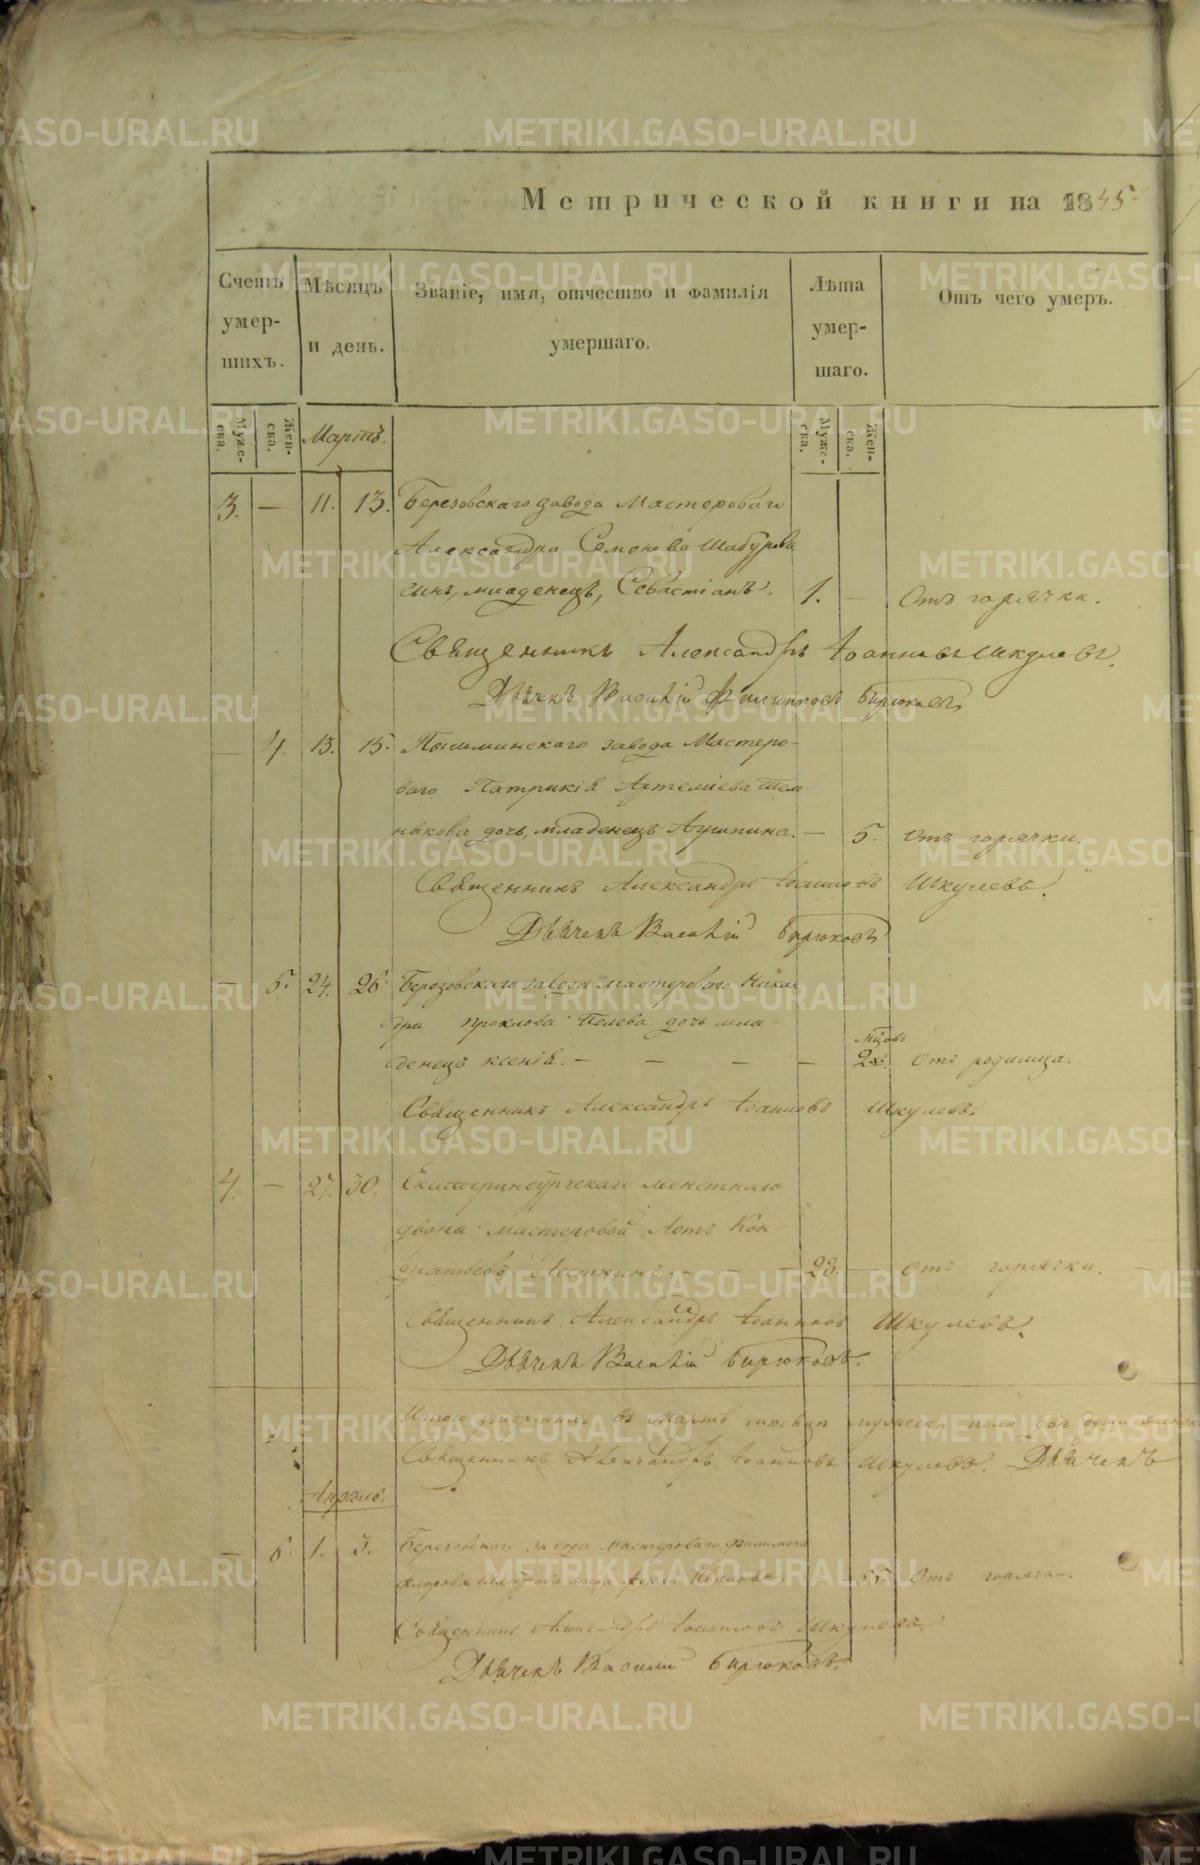 METRIKI.GASO-URAL.RU
Метрической книги на 1845
Счетъ умер-шихъ.
Мѣсяцъ и день.
Званіе, имя, отчество и фамилія умершаго.
Лѣта умер-шаго.
Отъ чего умеръ.
Муже-ска.
Жен-ска.
Мартъ.
Муже-ска.
Жен-ска.
3. — 11. 13. Березовскаго завода Мастероваго
Александра Семенова Шабурова
сынъ, младенецъ, Севастіанъ. 1. — Отъ горячки.
Священникъ Александръ Іоанновъ Шкулевъ.
Дьячекъ Василій Филиповъ Бирюковъ
— 4. 13. 15. Пышминскаго завода Мастеро-
ваго Патрикія Артеміева
дочь, младенецъ — 5. Отъ горячки.
Священникъ Александръ Іоанновъ Шкулевъ.
Дьячекъ Василій Бирюковъ
— 5. 24. 26. Березовскаго завода мастероваго Никан-
дра Проклова дочь мла-
денецъ Ксенія. — — — — 2 мцовъ Отъ родимца.
Священникъ Александръ Іоанновъ Шкулевъ.
4. — 27. 30. Екатеринбургскаго монетнаго
двора мастеровой Кон-
дратьевъ — — — — Отъ горячки. —
Священникъ Александръ Іоанновъ Шкулевъ.
Дьячекъ Василій Бирюковъ.
Итого умершихъ въ Мартѣ мѣсяцѣ мужеска пола
Священникъ Александръ Іоанновъ Шкулевъ. Дьячекъ
Апрѣль.
— 6. 1. 3. Березовскаго завода мастероваго
55. Отъ горячки.
Священникъ Александръ Іоанновъ Шкулевъ.
Дьячекъ Василій Бирюковъ.